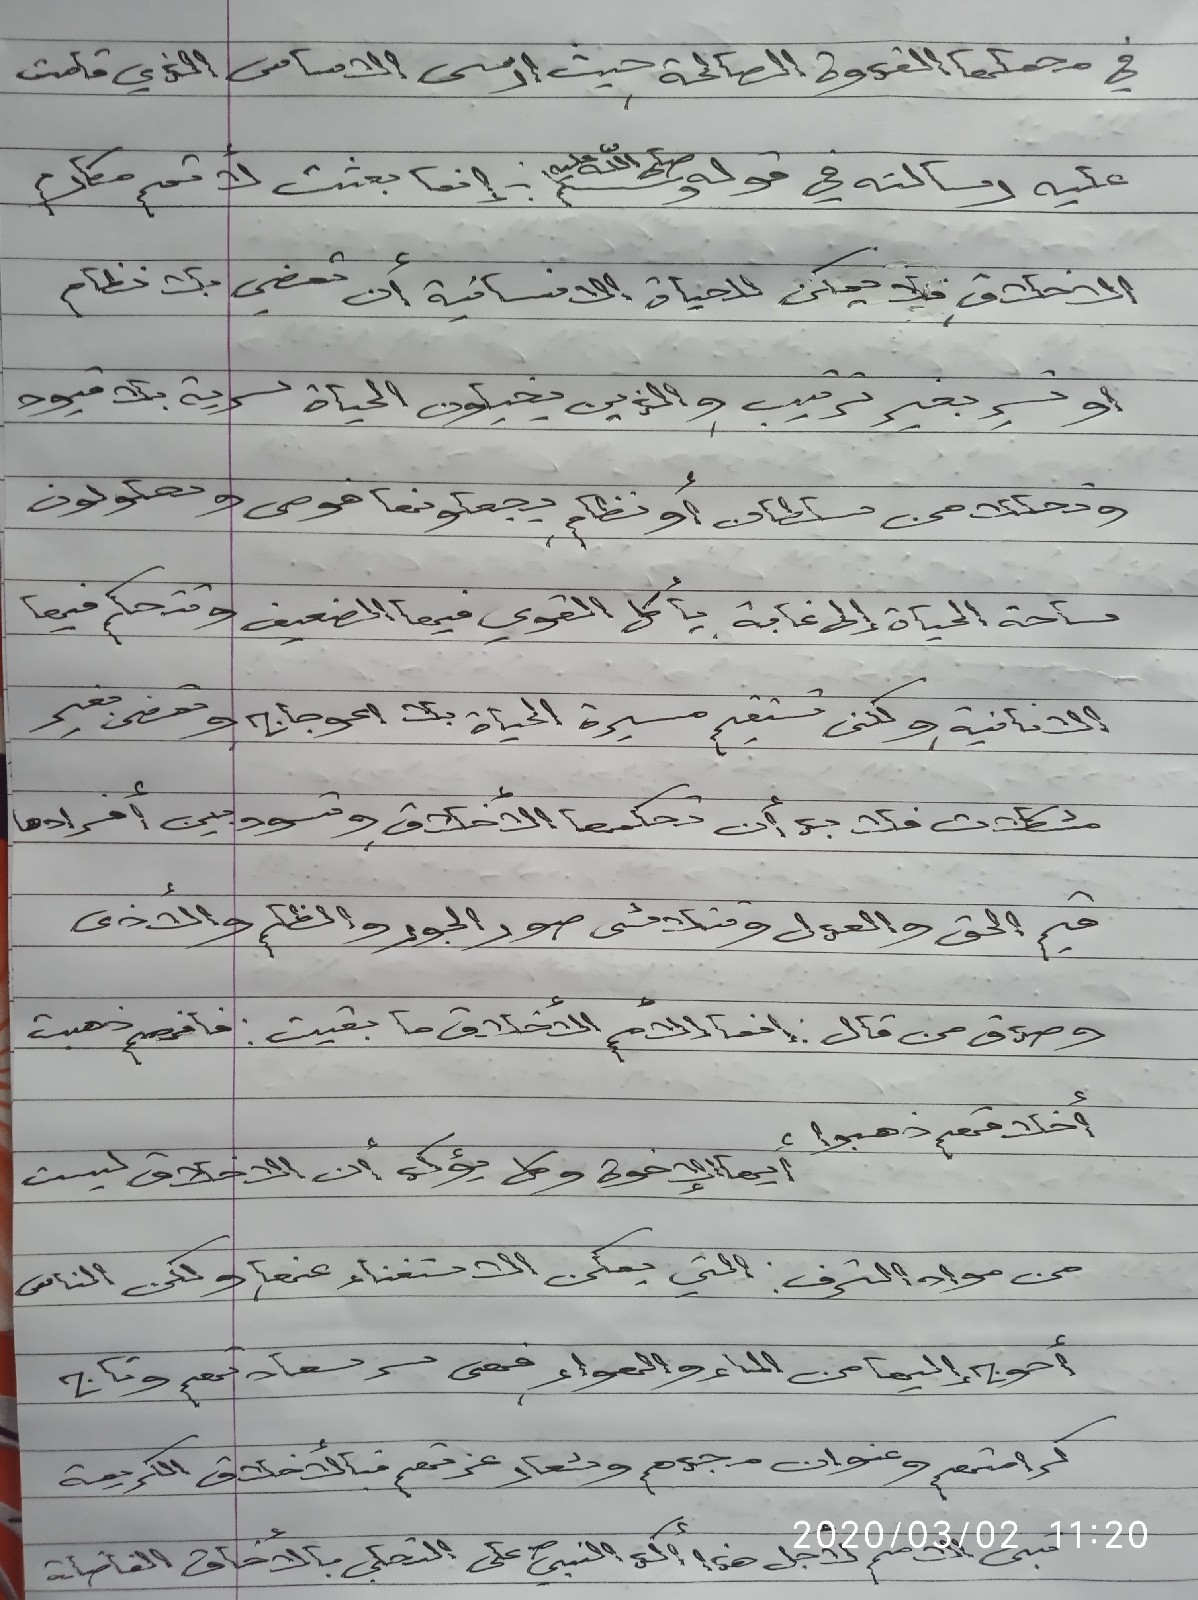 في مجملها القدوة الصالحة، حيث ارسى الاساس الذي قامت
عليه رسالته في قوله صلى الله عليه وسلم :- إنما بعثت لأتمم مكارم
الاخلاق، فلا يمكن للحياة الانسانية أن تمضي بلا نظام
او تسير بغير ترتيب، والذين يخيلون الحياة سرية بلا قيود
وتحللا من سلطان أو نظام، يجعلونها فوضى ويحولون
ساحة الحياة إلى غابة يأكل القوي فيها الضعيف وتتحكم فيها
الانانية، ولكي تستقيم مسيرة الحياة بلا اعوجاج، وتمضى بغير
مشكلات فلا بد أن تحكمها الأخلاق، وتسود بين أفرادها
قيم الحق والعدل وتتلاشى صور الجور والظلم والأذى
وصدق من قال : إنما الأمم الأخلاق ما بقيت : فإنهم ذهبت
أخلاقهم ذهبوا،
أيها الإخوة وكل يؤكد أن الاخلاق ليست
من مواد الترف : التي يمكن الاستغناء عنها ولكن الناس
أحوج إليها من الماء والهواء، فهى سر سعادتهم وتاج
كرامتهم وعنوان مجدهم وشعار عزتهم فبالأخلاق الكريمة
تبنى الامم لأجل هذا أكد النبي ص على التحلي بالأخاق الفاضلة
2020/03/02 11:20